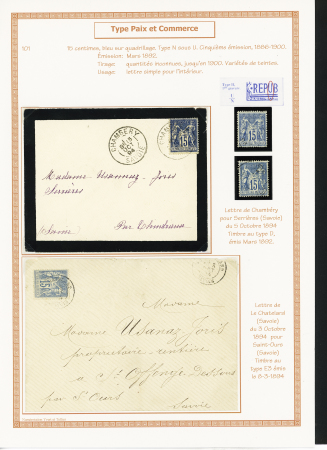 Type Paix et Commerce
101
15 centimes, bleu sur quadrillage. Type N sous U. Cinquième émission, 1886-1900.
Émission: Mars 1892.
Tirage: quantités inconnues, jusqu'en 1900. Variétés de teintes.
Usage: lettre simple pour l'intérieur.
REPUB
CHAMBERY
SAVOIE
15
15
15
Madame Usannaz Joris
Serrières
Savoie
Par Chindrieux
Lettre de Chambéry
pour Serrières (Savoie)
du 5 Octobre 1894
Timbre au type II,
émis Mars 1892.
15
Madame
Madame Usannaz Joris
propriétaire-rentière
à St Offenge-Dessous
par St Ours
Savoie
Lettre de
Le Chatelard
(Savoie)
du 3 Octobre
1894 pour
Saint-Ours
(Savoie)
Timbre au
type E3 émis
le 6-3-1894